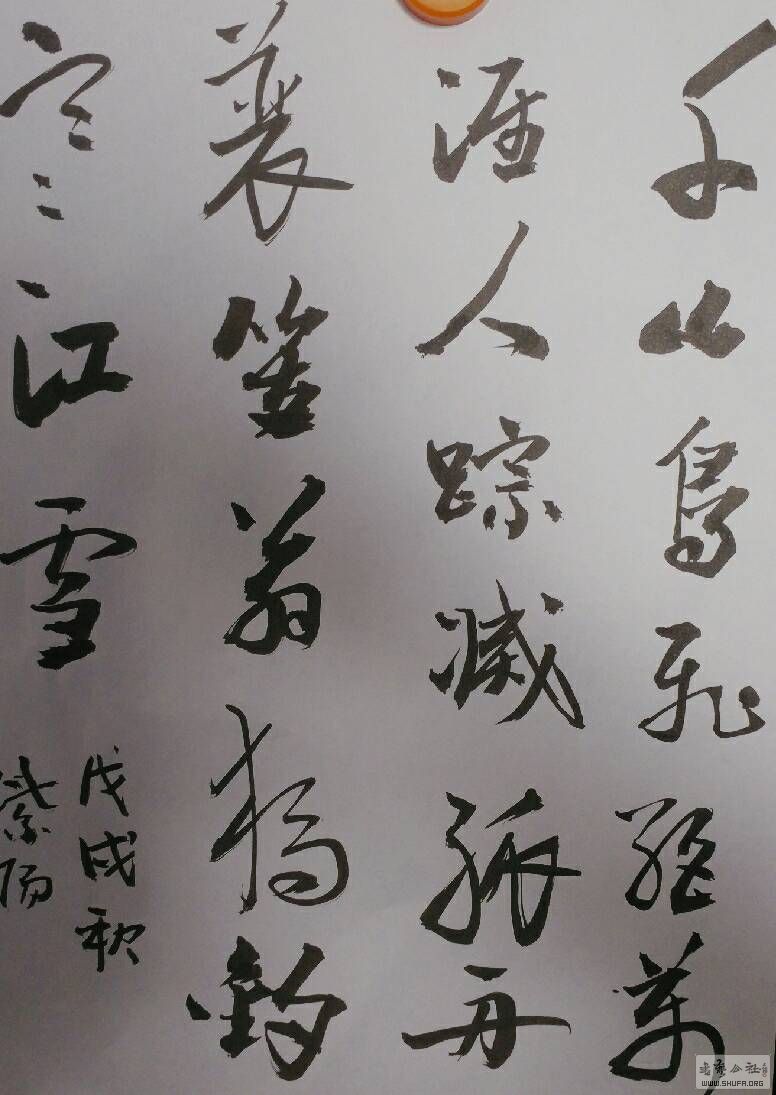 千山鳥飛絕萬
徑人踪滅孤舟
蓑笠翁獨釣
寒江雪
戊戌秋
紫陽
書藝公社
WWW.SHUFA.ORG